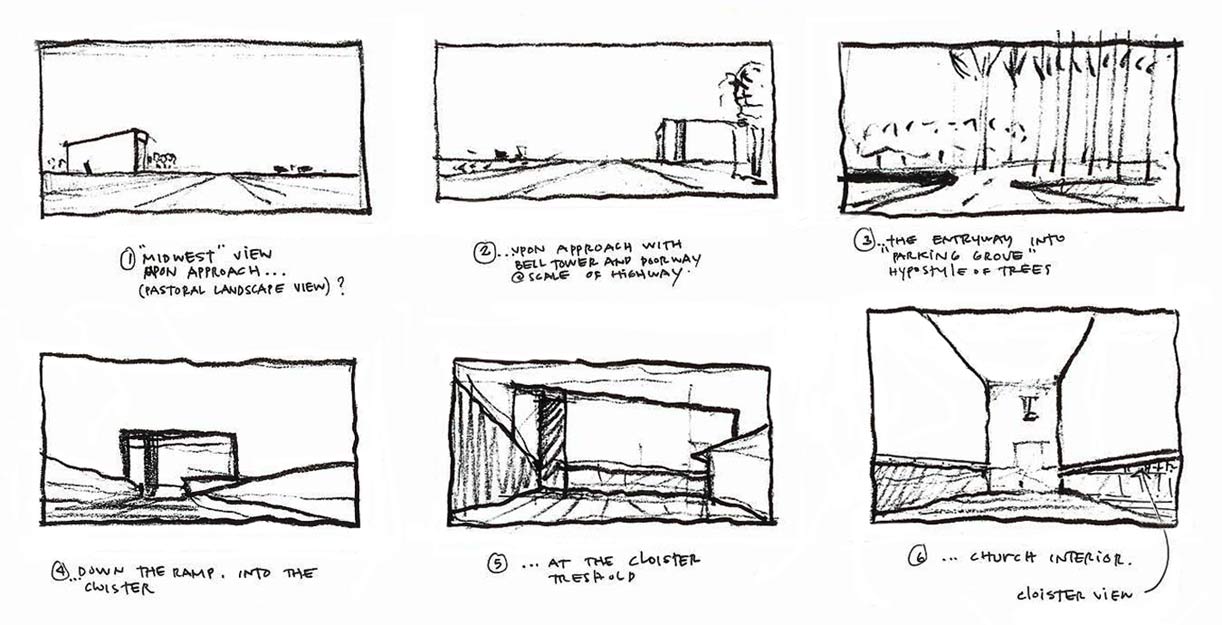 ① "MIDWEST" VIEW
UPON APPROACH...
(PASTORAL LANDSCAPE VIEW)?
② ...UPON APPROACH WITH
BELL TOWER AND DOORWAY
@ SCALE OF HIGHWAY.
③ ...THE ENTRYWAY INTO
"PARKING GROVE"
HYPOSTYLE OF TREES
④ ...DOWN THE RAMP. INTO THE
CLOISTER
⑤ ... AT THE CLOISTER
TRESHOLD
⑥ ... CHURCH INTERIOR.
CLOISTER VIEW